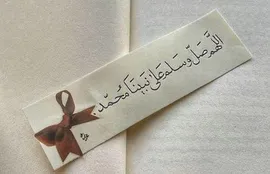 اللَّهُمَّ صَلِّ وَسَلِّم عَلَىٰ نَبِيِّنَا مُحَمَّد